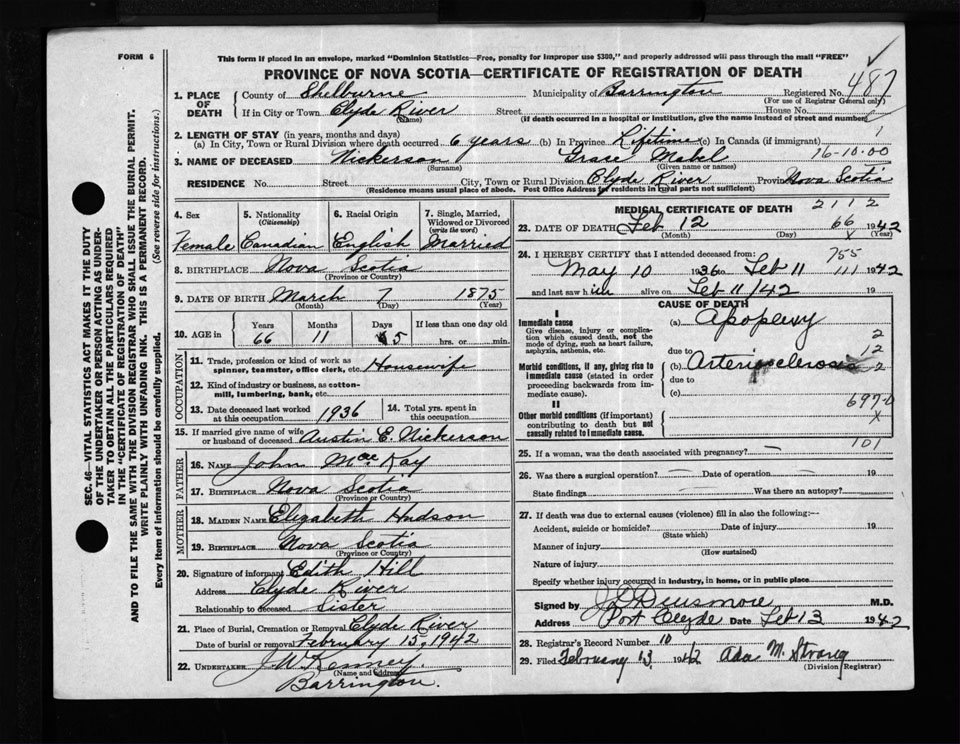 FORM 6
This form if placed in an envelope, marked "Dominion Statistics—Free, penalty for improper use $300," and properly addressed will pass through the mail "FREE"
PROVINCE OF NOVA SCOTIA—CERTIFICATE OF REGISTRATION OF DEATH
487
1. PLACE OF DEATH
County of Shelburne Municipality of Barrington Registered No.
(For use of Registrar General only)
If in City or Town Clyde River Street House No.
(Name) (If death occurred in a hospital or institution, give the name instead of street and number)
2. LENGTH OF STAY (in years, months and days)
(a) In City, Town or Rural Division where death occurred 6 years (b) In Province Lifetime (c) In Canada (if immigrant)
1
3. NAME OF DECEASED Nickerson Grace Mabel 16-10-00
(Surname) (Given name or names)
RESIDENCE No. Street City, Town or Rural Division Clyde River Province Nova Scotia
(Residence means usual place of abode. Post Office Address for residents in rural parts not sufficient)
4. Sex
Female
5. Nationality
(Citizenship)
Canadian
6. Racial Origin
English
7. Single, Married, Widowed or Divorced
(write the word)
Married
8. BIRTHPLACE Nova Scotia
(Province or Country)
9. DATE OF BIRTH March 7 1875
(Month) (Day) (Year)
10. AGE in
Years Months Days If less than one day old
66 11 5 hrs. or min.
OCCUPATION
11. Trade, profession or kind of work as spinner, teamster, office clerk, etc. Housewife
12. Kind of industry or business, as cotton-mill, lumbering, bank, etc.
13. Date deceased last worked at this occupation 1936
14. Total yrs. spent in this occupation
15. If married give name of wife or husband of deceased Austin E. Nickerson
FATHER
16. NAME John MacKay
17. BIRTHPLACE Nova Scotia
(Province or Country)
MOTHER
18. MAIDEN NAME Elizabeth Hudson
19. BIRTHPLACE Nova Scotia
(Province or Country)
20. Signature of informant Edith Hill
Address Clyde River
Relationship to deceased Sister
21. Place of Burial, Cremation or Removal Clyde River
Date of burial or removal February 15, 1942
22. UNDERTAKER J W Kenney
(Name and Address)
Barrington.
MEDICAL CERTIFICATE OF DEATH 2112
23. DATE OF DEATH Feb 12 66 1942
(Month) (Day) x (Year)
24. I HEREBY CERTIFY that I attended deceased from: 755
May 10 1936 to Feb 11 111 1942
and last saw h im alive on Feb 11/42 19
CAUSE OF DEATH
I
Immediate cause
Give disease, injury or complication which caused death, not the mode of dying, such as heart failure, asphyxia, asthenia, etc.
(a) Apoplexy
2
due to 12
Morbid conditions, if any, giving rise to immediate cause (stated in order proceeding backwards from immediate cause).
(b) Arteriosclerosis 2
due to
(c)
697-0
x
II
Other morbid conditions (if important) contributing to death but not causally related to immediate cause.
101
25. If a woman, was the death associated with pregnancy?
26. Was there a surgical operation? Date of operation 19
State findings Was there an autopsy?
27. If death was due to external causes (violence) fill in also the following:—
Accident, suicide or homicide? Date of injury 19
(State which)
Manner of injury
(How sustained)
Nature of injury
Specify whether injury occurred in industry, in home, or in public place
Signed by Densmore M.D.
Address Port Clyde Date Feb 13 1942
28. Registrar's Record Number 10
29. Filed February 13 1942 Ada M. Strang
(Division Registrar)
SEC. 46—VITAL STATISTICS ACT MAKES IT THE DUTY
OF THE UNDERTAKER OR PERSON ACTING AS UNDER-
TAKER TO OBTAIN ALL THE PARTICULARS REQUIRED
IN THE "CERTIFICATE OF REGISTRATION OF DEATH"
AND TO FILE THE SAME WITH THE DIVISION REGISTRAR WHO SHALL ISSUE THE BURIAL PERMIT.
WRITE PLAINLY WITH UNFADING INK. THIS IS A PERMANENT RECORD.
Every item of information should be carefully supplied. (See reverse side for instructions.)